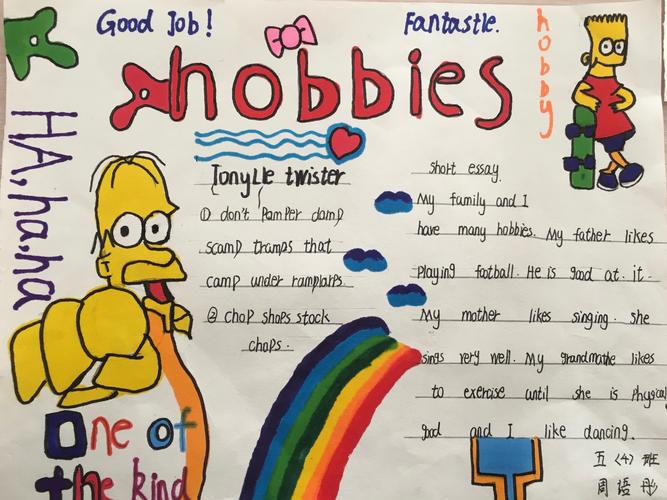 Good Job!
Fantastle.
hobbies
hobby
HA,ha,ha
Tonyue twister
① don't pamper damp
scamp tramps that
camp under ramplarps
② chop shops stock
chops.
short essay
My family and I
have many hobbies. My father likes
playing football. He is good at. it.
My mother likes singing. she
sings very well. My grandmathe likes
to exercise until she is physical
good and I like dancing.
One of
the kind
五〈4〉班
周语彤